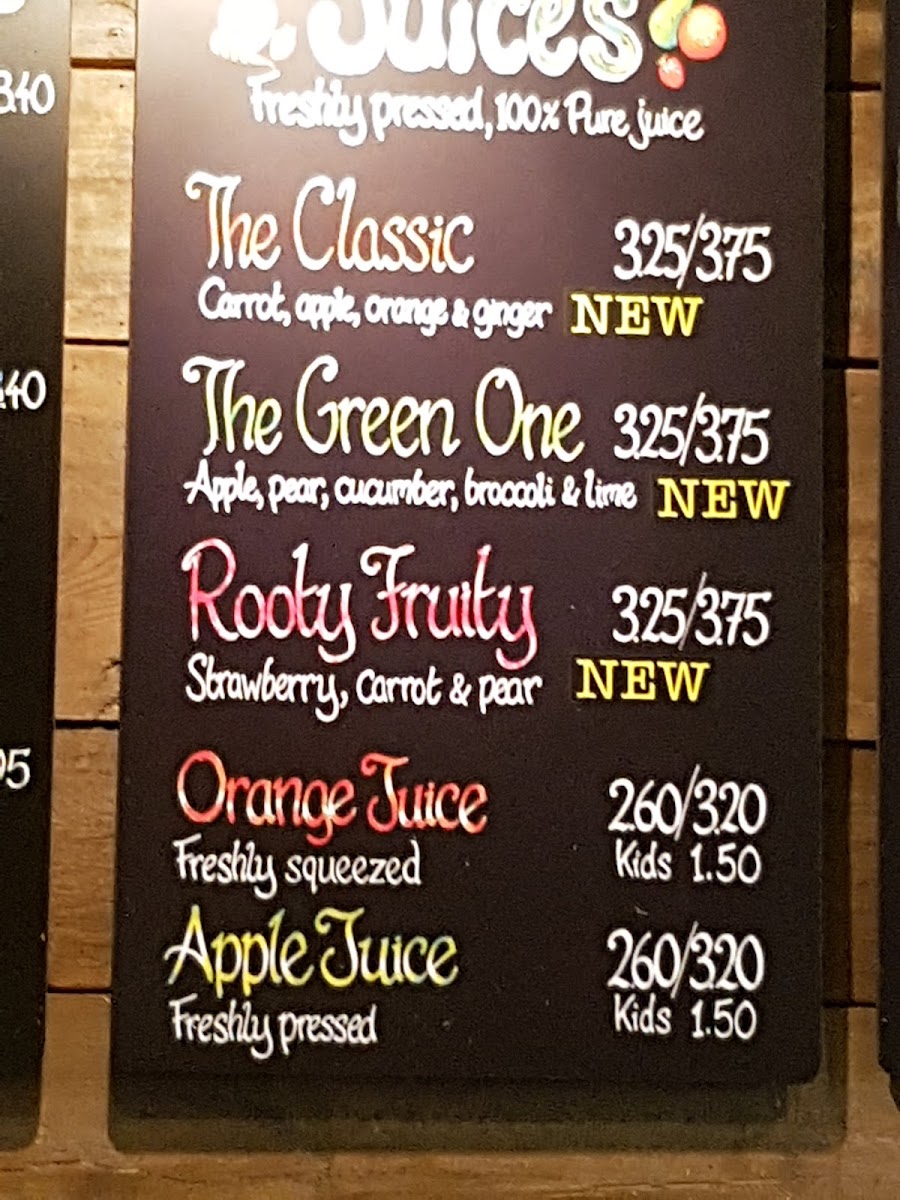 Juices
Freshly pressed, 100% Pure juice
The Classic 3.25/3.75
Carrot, apple, orange & ginger NEW
The Green One 3.25/3.75
Apple, pear, cucumber, broccoli & lime NEW
Rooty Fruity 3.25/3.75
Strawberry, Carrot & pear NEW
Orange Juice 2.60/3.20
Freshly squeezed Kids 1.50
Apple Juice 2.60/3.20
Freshly pressed Kids 1.50